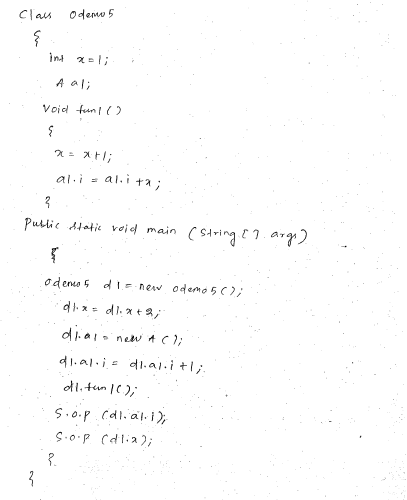 Class Odemo5
{
int x=1;
A a1;
void fun1()
{
x = x+1;
a1.i = a1.i +x;
}
Public static void main (String [] args)
{
odemo5 d1 = new odemo5();
d1.x = d1.x+2;
d1.a1 = new A();
d1.a1.i = d1.a1.i +1;
d1.fun1();
S.o.p (d1.a1.i);
S.o.p (d1.x);
}
}